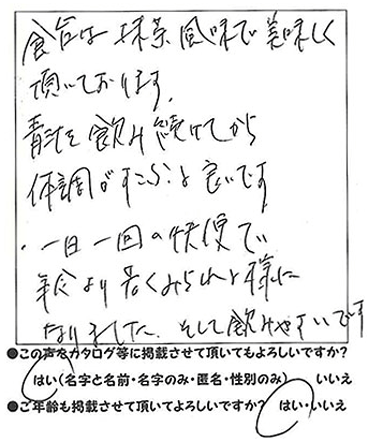 食合は抹茶風味で美味しく
頂いております。
青汁を飲み続けてから
体調がすこぶる良いです
・一日一回の快便で
年令より若くみられる様に
なりました。そして飲みやすいです
●この声をカタログ等に掲載させて頂いてもよろしいですか?
はい(名字と名前・名字のみ・匿名・性別のみ) いいえ
●ご年齢も掲載させて頂いてよろしいですか? はい・いいえ